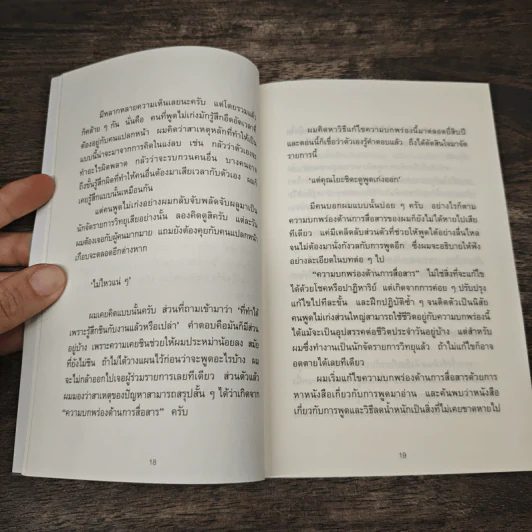 มีหลากหลายความเห็นเลยนะครับ แต่โดยรวมแล้ว
ก็คล้าย ๆ กัน นั่นคือ คนที่พูดไม่เก่งมักรู้สึกอึดอัดเวลาที่
ต้องอยู่กับคนแปลกหน้า ผมคิดว่าสาเหตุหลักที่ทำให้เป็น
แบบนี้น่าจะมาจากการคิดในแง่ลบ เช่น กลัวว่าตัวเองจะ
ทำอะไรผิดพลาด กลัวว่าจะรบกวนคนอื่น บางคนอาจ
ถึงขั้นรู้สึกผิดที่ทำให้คนอื่นต้องมาเสียเวลากับตัวเอง ผมก็
เคยรู้สึกแบบนั้นเหมือนกัน
แต่คนพูดไม่เก่งอย่างผมกลับจับพลัดจับผลูมาเป็น
นักจัดรายการวิทยุเสียอย่างนั้น ลองคิดดูสิครับ แต่ละวัน
ผมต้องเจอกับผู้คนมากมาย แถมยังต้องคุยกับคนแปลกหน้า
เกือบจะตลอดอีกต่างหาก
'ไม่ไหวแน่ ๆ'
ผมเคยคิดแบบนั้นครับ ส่วนที่ถามเข้ามาว่า 'ที่ทำได้
เพราะรู้สึกชินกับงานแล้วหรือเปล่า' คำตอบคือมันก็มีส่วน
อยู่บ้าง เพราะความเคยชินช่วยให้ผมประหม่าน้อยลง สมัย
ที่ยังไม่ชิน ถ้าไม่ได้วางแผนไว้ก่อนว่าจะพูดอะไรบ้าง ผม
จะไม่กล้าออกไปเจอผู้ร่วมรายการเลยทีเดียว ส่วนตัวแล้ว
ผมมองว่าสาเหตุของปัญหาสามารถสรุปสั้น ๆ ได้ว่าเกิดจาก
"ความบกพร่องด้านการสื่อสาร" ครับ
18
ผมคิดหาวิธีแก้ไขความบกพร่องนี้มาตลอดยี่สิบปี
และตอนนี้ก็เชื่อว่าตัวเองรู้คำตอบแล้ว ถึงได้ตัดสินใจมาจัด
รายการนี้
'แต่คุณโยะชิดะดูพูดเก่งออก'
มีคนบอกผมแบบนั้นบ่อย ๆ ครับ อย่างไรก็ตาม
ความบกพร่องด้านการสื่อสารของผมก็ยังไม่ได้หายไปเสีย
ทีเดียว แต่มีเคล็ดลับส่วนตัวที่ช่วยให้พูดได้อย่างลื่นไหล
จนไม่ต้องมานั่งกังวลกับการพูดอีก ซึ่งผมจะอธิบายให้ฟัง
อย่างละเอียดในบทต่อ ๆ ไป
"ความบกพร่องด้านการสื่อสาร" ไม่ใช่สิ่งที่จะแก้ไข
ได้ด้วยโชคหรือปาฏิหาริย์ แต่เกิดจากการค่อย ๆ ปรับปรุง
แก้ไขไปทีละขั้น และฝึกปฏิบัติซ้ำ ๆ จนติดตัวเป็นนิสัย
คนพูดไม่เก่งส่วนใหญ่สามารถใช้ชีวิตอยู่กับความบกพร่องนี้
ได้แม้จะเป็นอุปสรรคต่อชีวิตประจำวันอยู่บ้าง แต่สำหรับ
ผมซึ่งทำงานเป็นนักจัดรายการวิทยุแล้ว ถ้าไม่แก้ไขก็อาจ
อดตายได้เลยทีเดียว
ผมเริ่มแก้ไขความบกพร่องด้านการสื่อสารด้วยการ
หาหนังสือเกี่ยวกับการพูดมาอ่าน และค้นพบว่าหนังสือ
เกี่ยวกับการพูดและวิธีลดน้ำหนักเป็นสิ่งที่ไม่เคยขาดหายไป
19